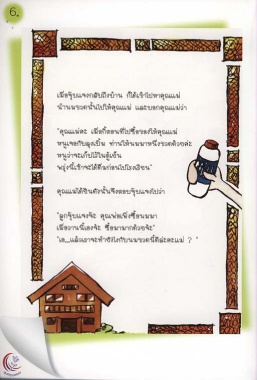 6.
เมื่อจุ๊บแจงกลับถึงบ้าน ก็ได้เข้าไปหาคุณแม่
นำนมขวดนั้นไปให้คุณแม่ และบอกคุณแม่ว่า
"คุณแม่คะ เมื่อกี้ตอนที่ไปซื้อของให้คุณแม่
หนูเจอกับลุงเอิบ ท่านให้นมมาหนึ่งขวดด้วยค่ะ
หนูว่าจะเก็บไว้ในตู้เย็น
พรุ่งนี้เช้าจะได้ดื่มก่อนไปโรงเรียน"
คุณแม่ได้ยินดังนั้นจึงตอบจุ๊บแจงไปว่า
"ลูกจุ๊บแจงจ๊ะ คุณพ่อเพิ่งซื้อนมมา
เมื่อวานนี้เองจ้ะ ซื้อมามากด้วยจ้ะ"
"เอ...แล้วเราจะทำยังไงกับนมขวดนี้ดีล่ะคะแม่ ? "